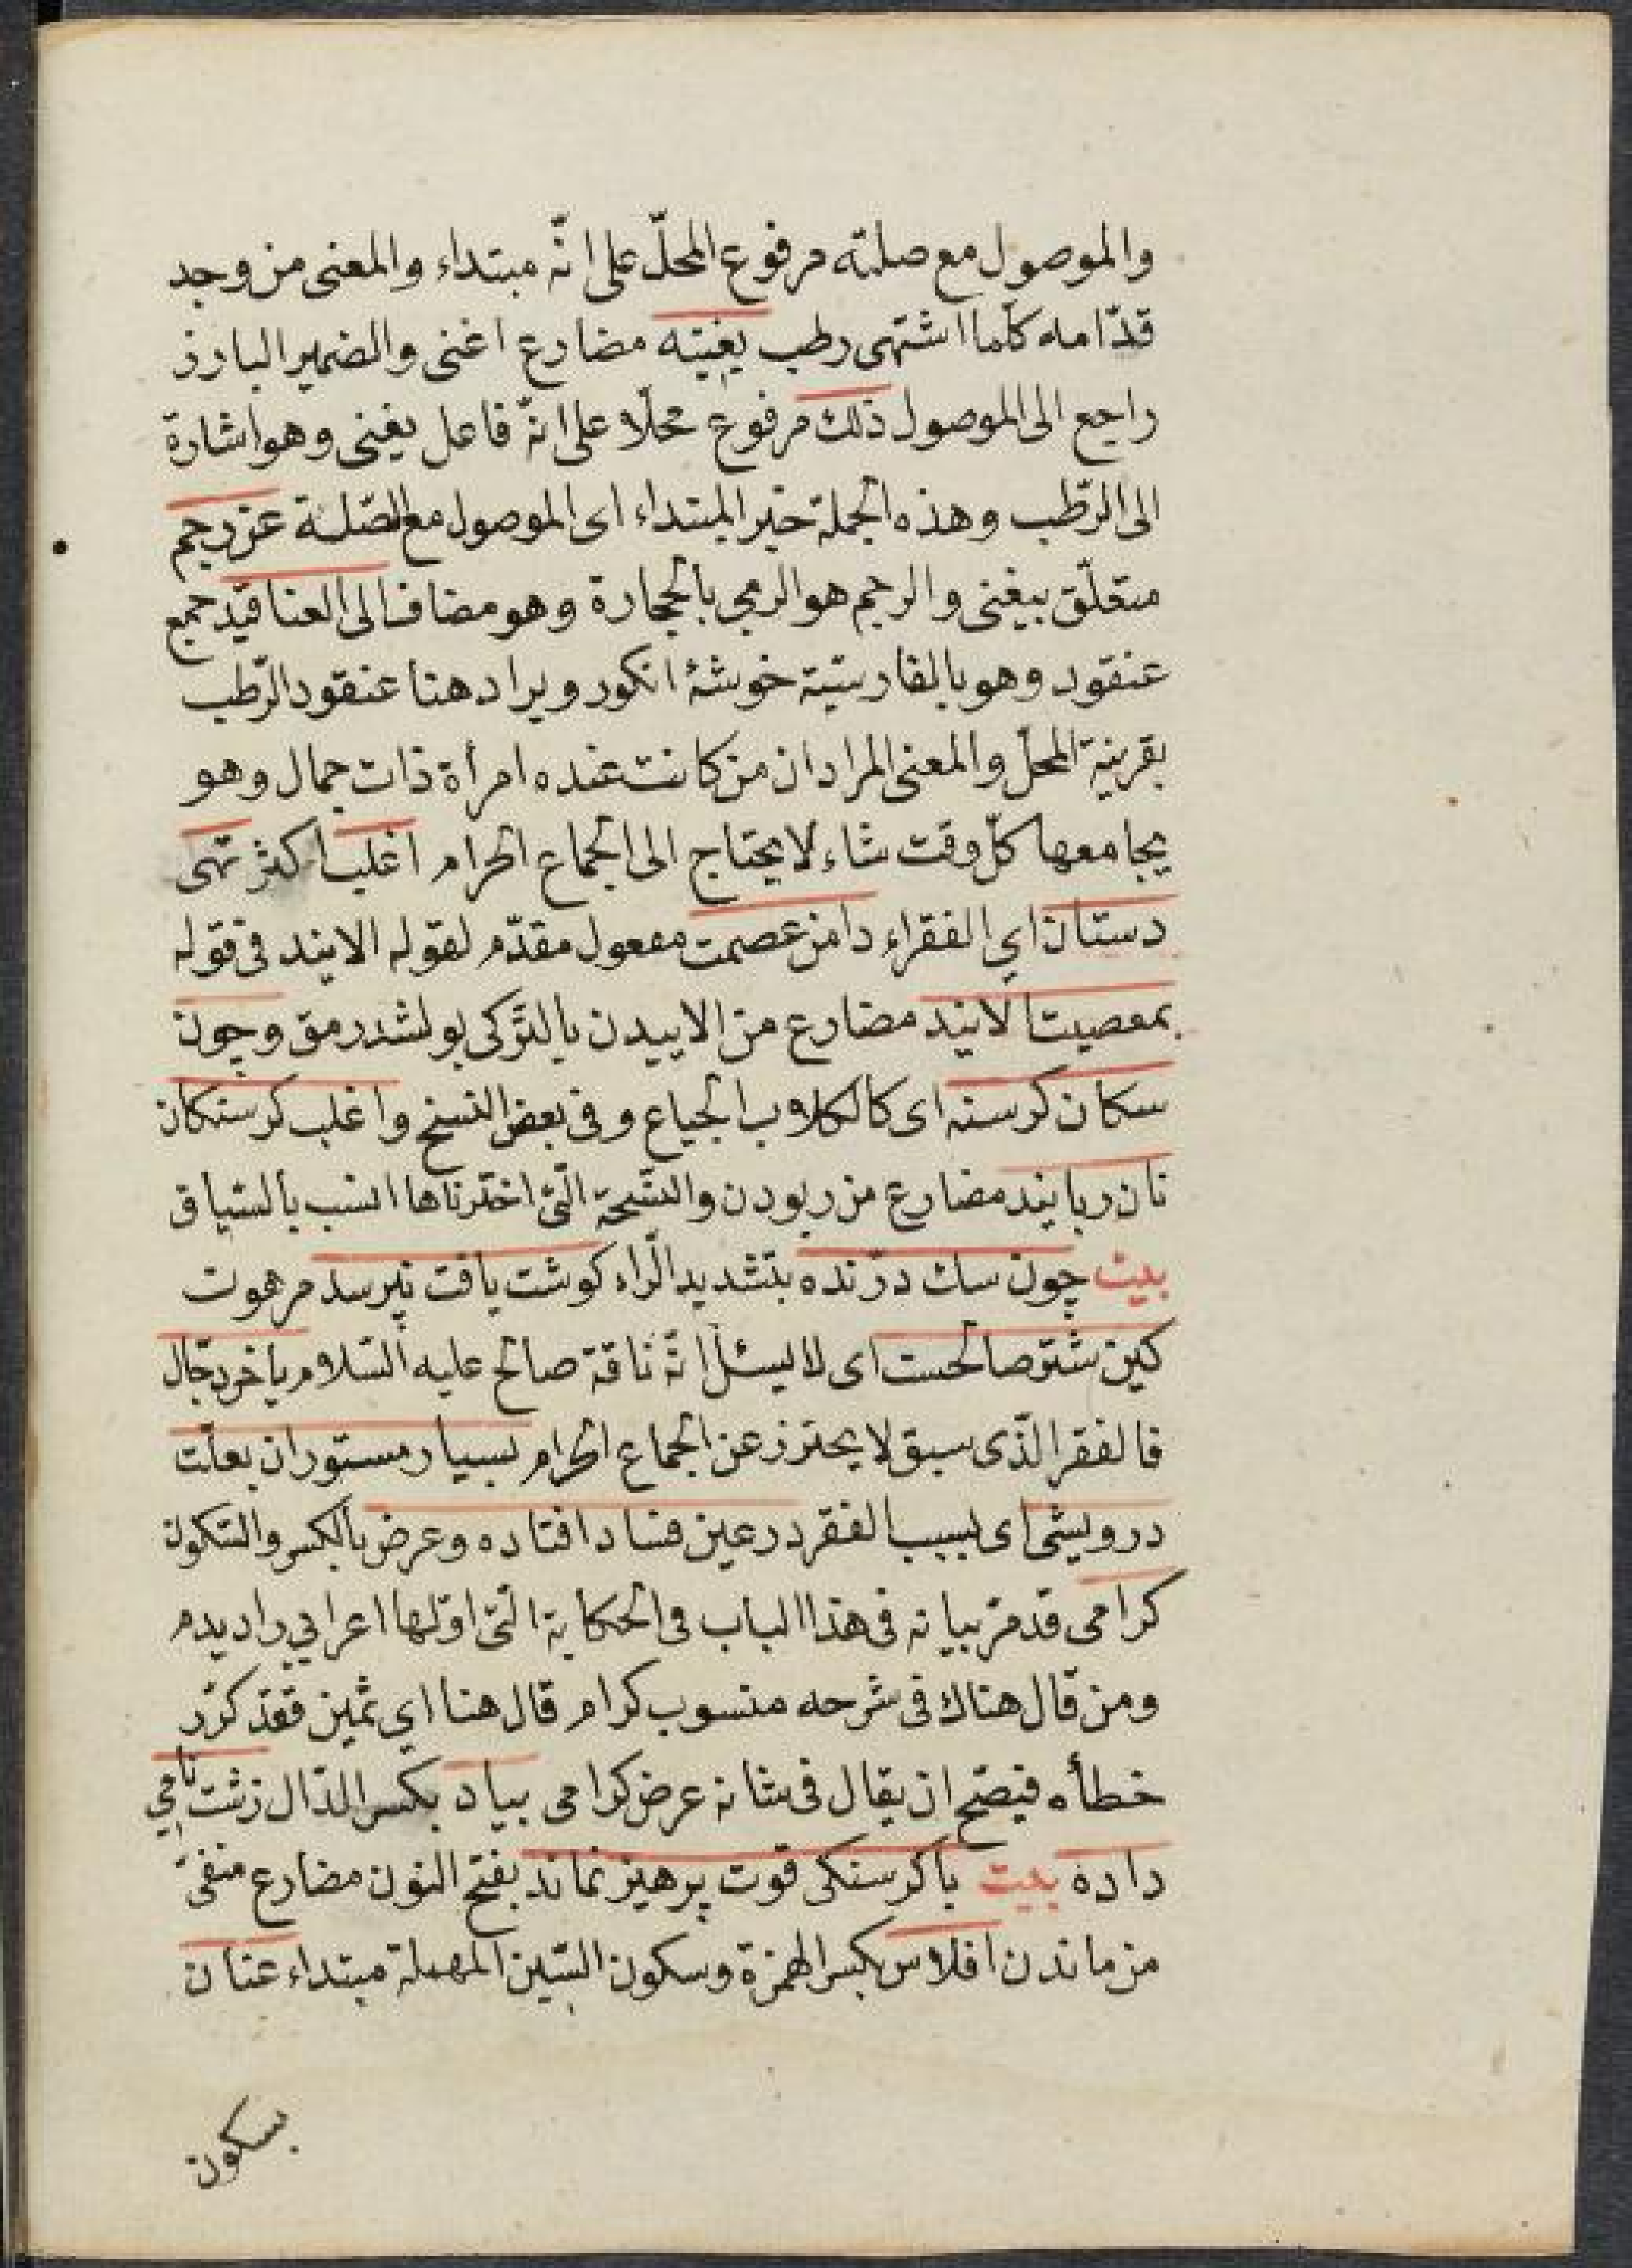 والموصول مع صلته مرفوع المحلّ على انّه مبتداء والمعنى من وجد
قدّامه كلما اشتهى رطب يغنيه مضارع اغنى والضمير البارز
راجع الى الموصول ذلك مرفوع محلا على انّه فاعل يغنى وهو اشارة
الى الرّطب وهذه الجملة خبر المبتداء اى الموصول مع الصّلة عن رجم
متعلّق بيغنى والرجم هو الرمى بالحجارة وهو مضاف الى العناقيد جمع
عنقود وهو بالفارسيّة خوشهٔ انكور ويراد هنا عنقود الرّطب
بقرينة المحلّ والمعنى المراد ان من كانت عنده امرأة ذات جمال وهو
يجامعها كلّ وقت شاء لا يحتاج الى الجماع الحرام اغلب اكثر تهى
دستان اي الفقراء دامن عصمت مفعول مقدّم لقوله الايند فى قوله
بمعصيت الايند مضارع من الاييدن بالتركى بولشدرمق وچون
سكان كرسنه اى كالكلاب الجياع وفى بعض النسخ واغلب كرسنكان
نان ربايند مضارع من ربودن والنسخة الّتى اخترناها انسب بالسّياق
بيت چون سك درّنده بتشديد الرّاء كوشت يافت نپرسد مرهوت
كين شتر صالحست اى لا يسئل انّه ناقة صالح عليه السّلام يا خر دجّال
فالفقر الذّى سبق لا يحترز عن الجماع الحرام بسيار مستوران بعلّت
درويشى اى بسبب الفقر در عين فساد افتاده وعرض بالكسر والسّكون
كرامى قد مرّ بيانه فى هذا الباب فى الحكاية الّتى اوّلها اعرابي را ديدم
ومن قال هناك فى شرحه منسوب كرام قال هنا اي ثمين فقد كرّر
خطأه فيصّح ان يقال فى شانه عرض كرامى بباد بكسر الدّال زشت نامي
داده بيت باكرسنكى قوت پرهيز نماند بفتح النون مضارع منفىّ
من ماندن افلاس بكسر الهمزة وسكون السّين المهملة مبتداء عنان
بسكون